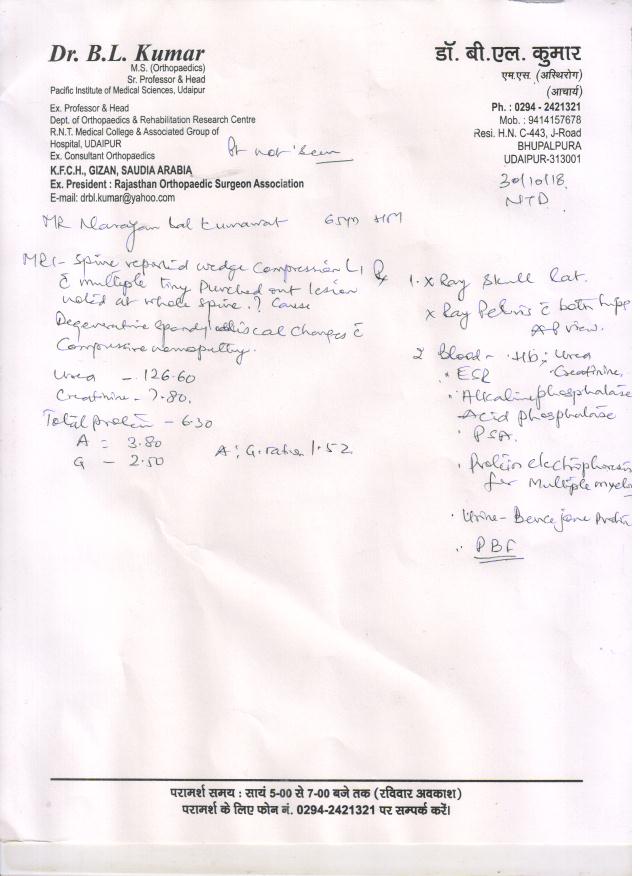 Dr. B.L. Kumar
M.S. (Orthopaedics)
Sr. Professor & Head
Pacific Institute of Medical Sciences, Udaipur
Ex. Professor & Head
Dept. of Orthopaedics & Rehabilitation Research Centre
R.N.T. Medical College & Associated Group of
Hospital, UDAIPUR
Ex. Consultant Orthopaedics
K.F.C.H., GIZAN, SAUDIA ARABIA
Ex. President : Rajasthan Orthopaedic Surgeon Association
E-mail: drbl.kumar@yahoo.com
डॉ. बी.एल. कुमार
एम.एस. (अस्थिरोग)
(आचार्य)
Ph. : 0294 - 2421321
Mob. : 9414157678
Resi. H.N. C-443, J-Road
BHUPALPURA
UDAIPUR-313001
Pt not seen
30/10/18
NTD
MR Narayan Lal Kumawat 65yo
MRI- Spine reported wedge Compression L1 &
c multiple tiny Punched out lesion
noted at whole spine. ? Cause
Degenerative Spondylodiscal Changes c
Compressive
Urea - 126.60
Creatinine - 7.80.
Total protein - 6.30
A = 3.80
G - 2.50
A:G. ratio 1.52
1. X Ray Skull Lat.
X Ray Pelvis c both hips
AP view.
2 Blood - Hb, Urea
ESR Creatinine,
Alkaline phosphatase
Acid phosphatase
PSA.
Protein electrophoresis
for Multiple myelo
Urine - Bence jone Protein
PBF
परामर्श समय : सायं 5-00 से 7-00 बजे तक (रविवार अवकाश)
परामर्श के लिए फोन नं. 0294-2421321 पर सम्पर्क करें।